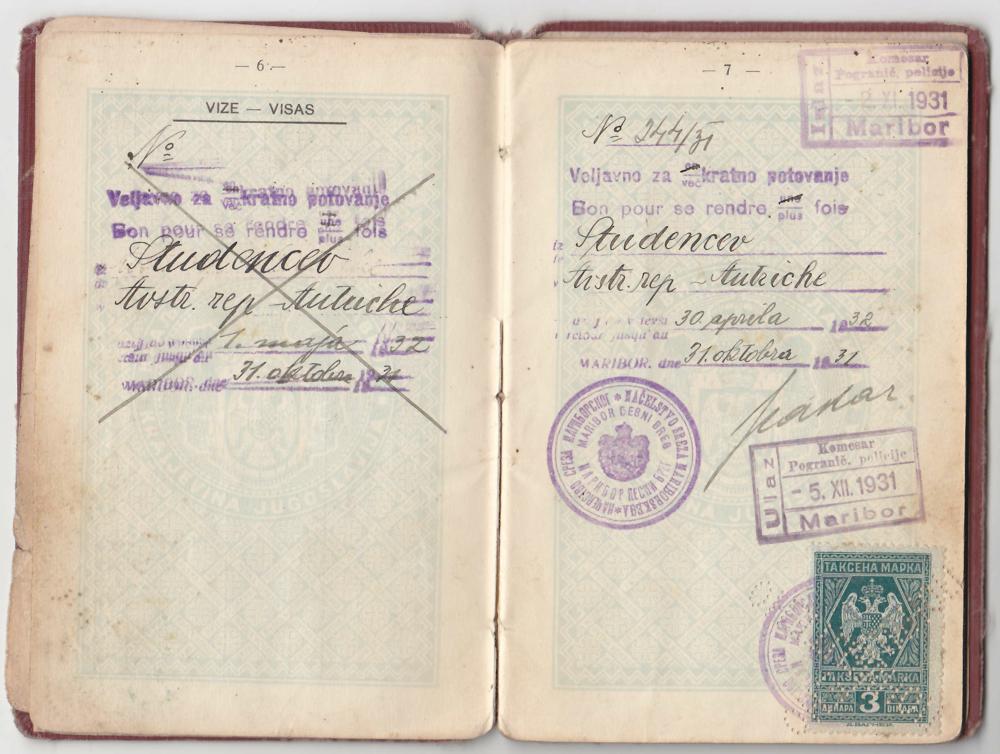 — 6 —
VIZE — VISAS
№
Veljavno za en več kratno potovanje
Bon pour se rendre une plus fois
Studencev
Avstr. rep - Autriche
1. maja 1932
MARIBOR, dne 31. oktobra 1931
— 7 —
Izlaz
Komesar
Pogranič. policije
XI. 1931
Maribor
№ 244/31
Veljavno za en več kratno potovanje
Bon pour se rendre une plus fois
Studencev
Avstr. rep - Autriche
retour jusqu'au 30. aprila 1932
MARIBOR, dne 31. oktobra 1931
НАЧЕЛСТВО СРЕЗА МАРИБОРСКОГ * NAČELSTVO SREZA MARIBORSKEGA *
MARIBOR DESNI BREG
МАРИБОР ДЕСНИ БРЕГ
Ulaz
Komesar
Pogranič. policije
- 5. XII. 1931
Maribor
ТАКСЕНА МАРКА
TAKSENA MARKA
ДИНАРА 3 DINARA